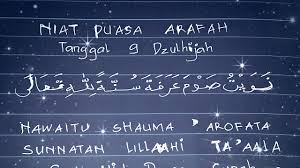 NIAT PUASA ARAFAH
Tanggal 9 Dzulhijah
نَوَيْتُ صَوْمَ عَرَفَةَ سُنَّةً لِلّٰهِ تَعَالَى
NAWAITU SHAUMA AROFATA
SUNNATAN LILLAAHI TA'AALA